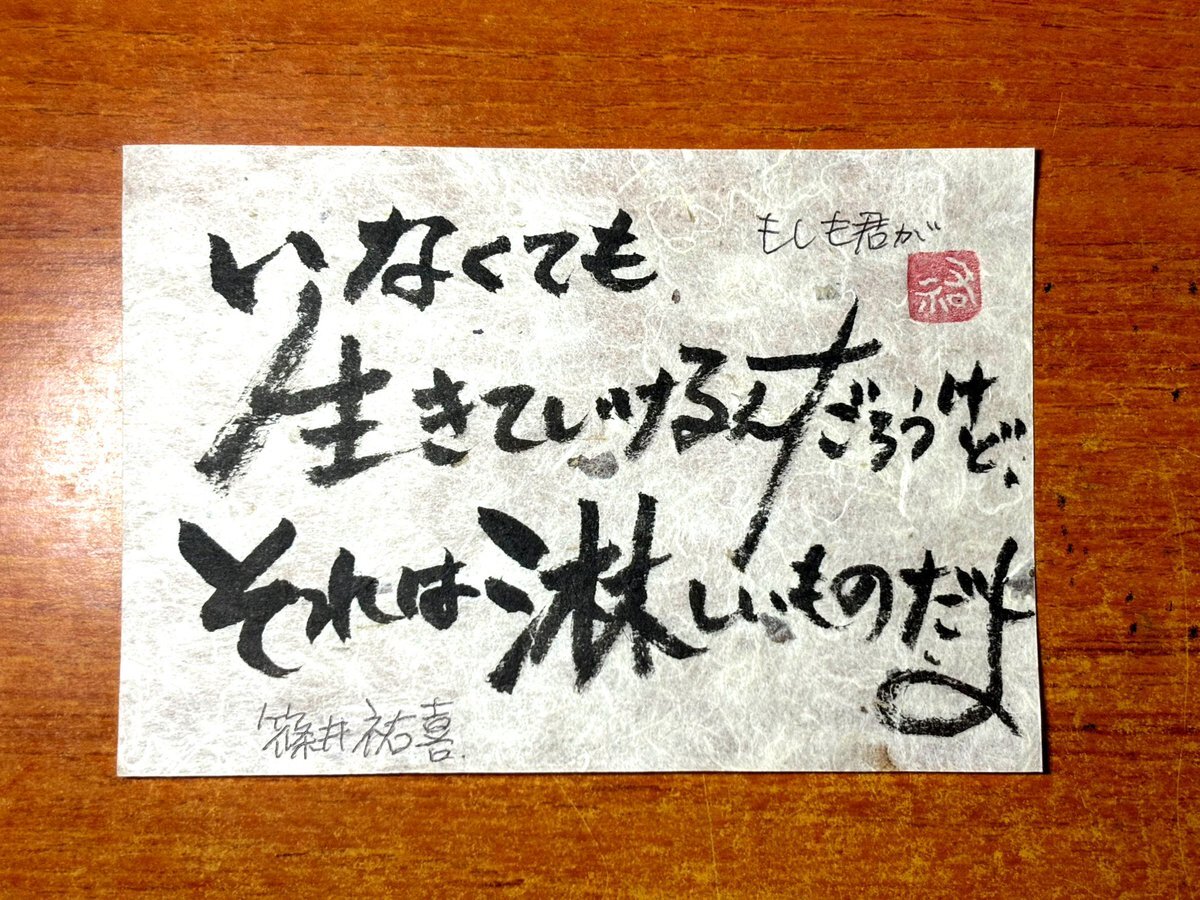 もしも君が
祐
いなくても
生きていけるんだろうけど、
それは淋しいものだよ
篠井祐喜